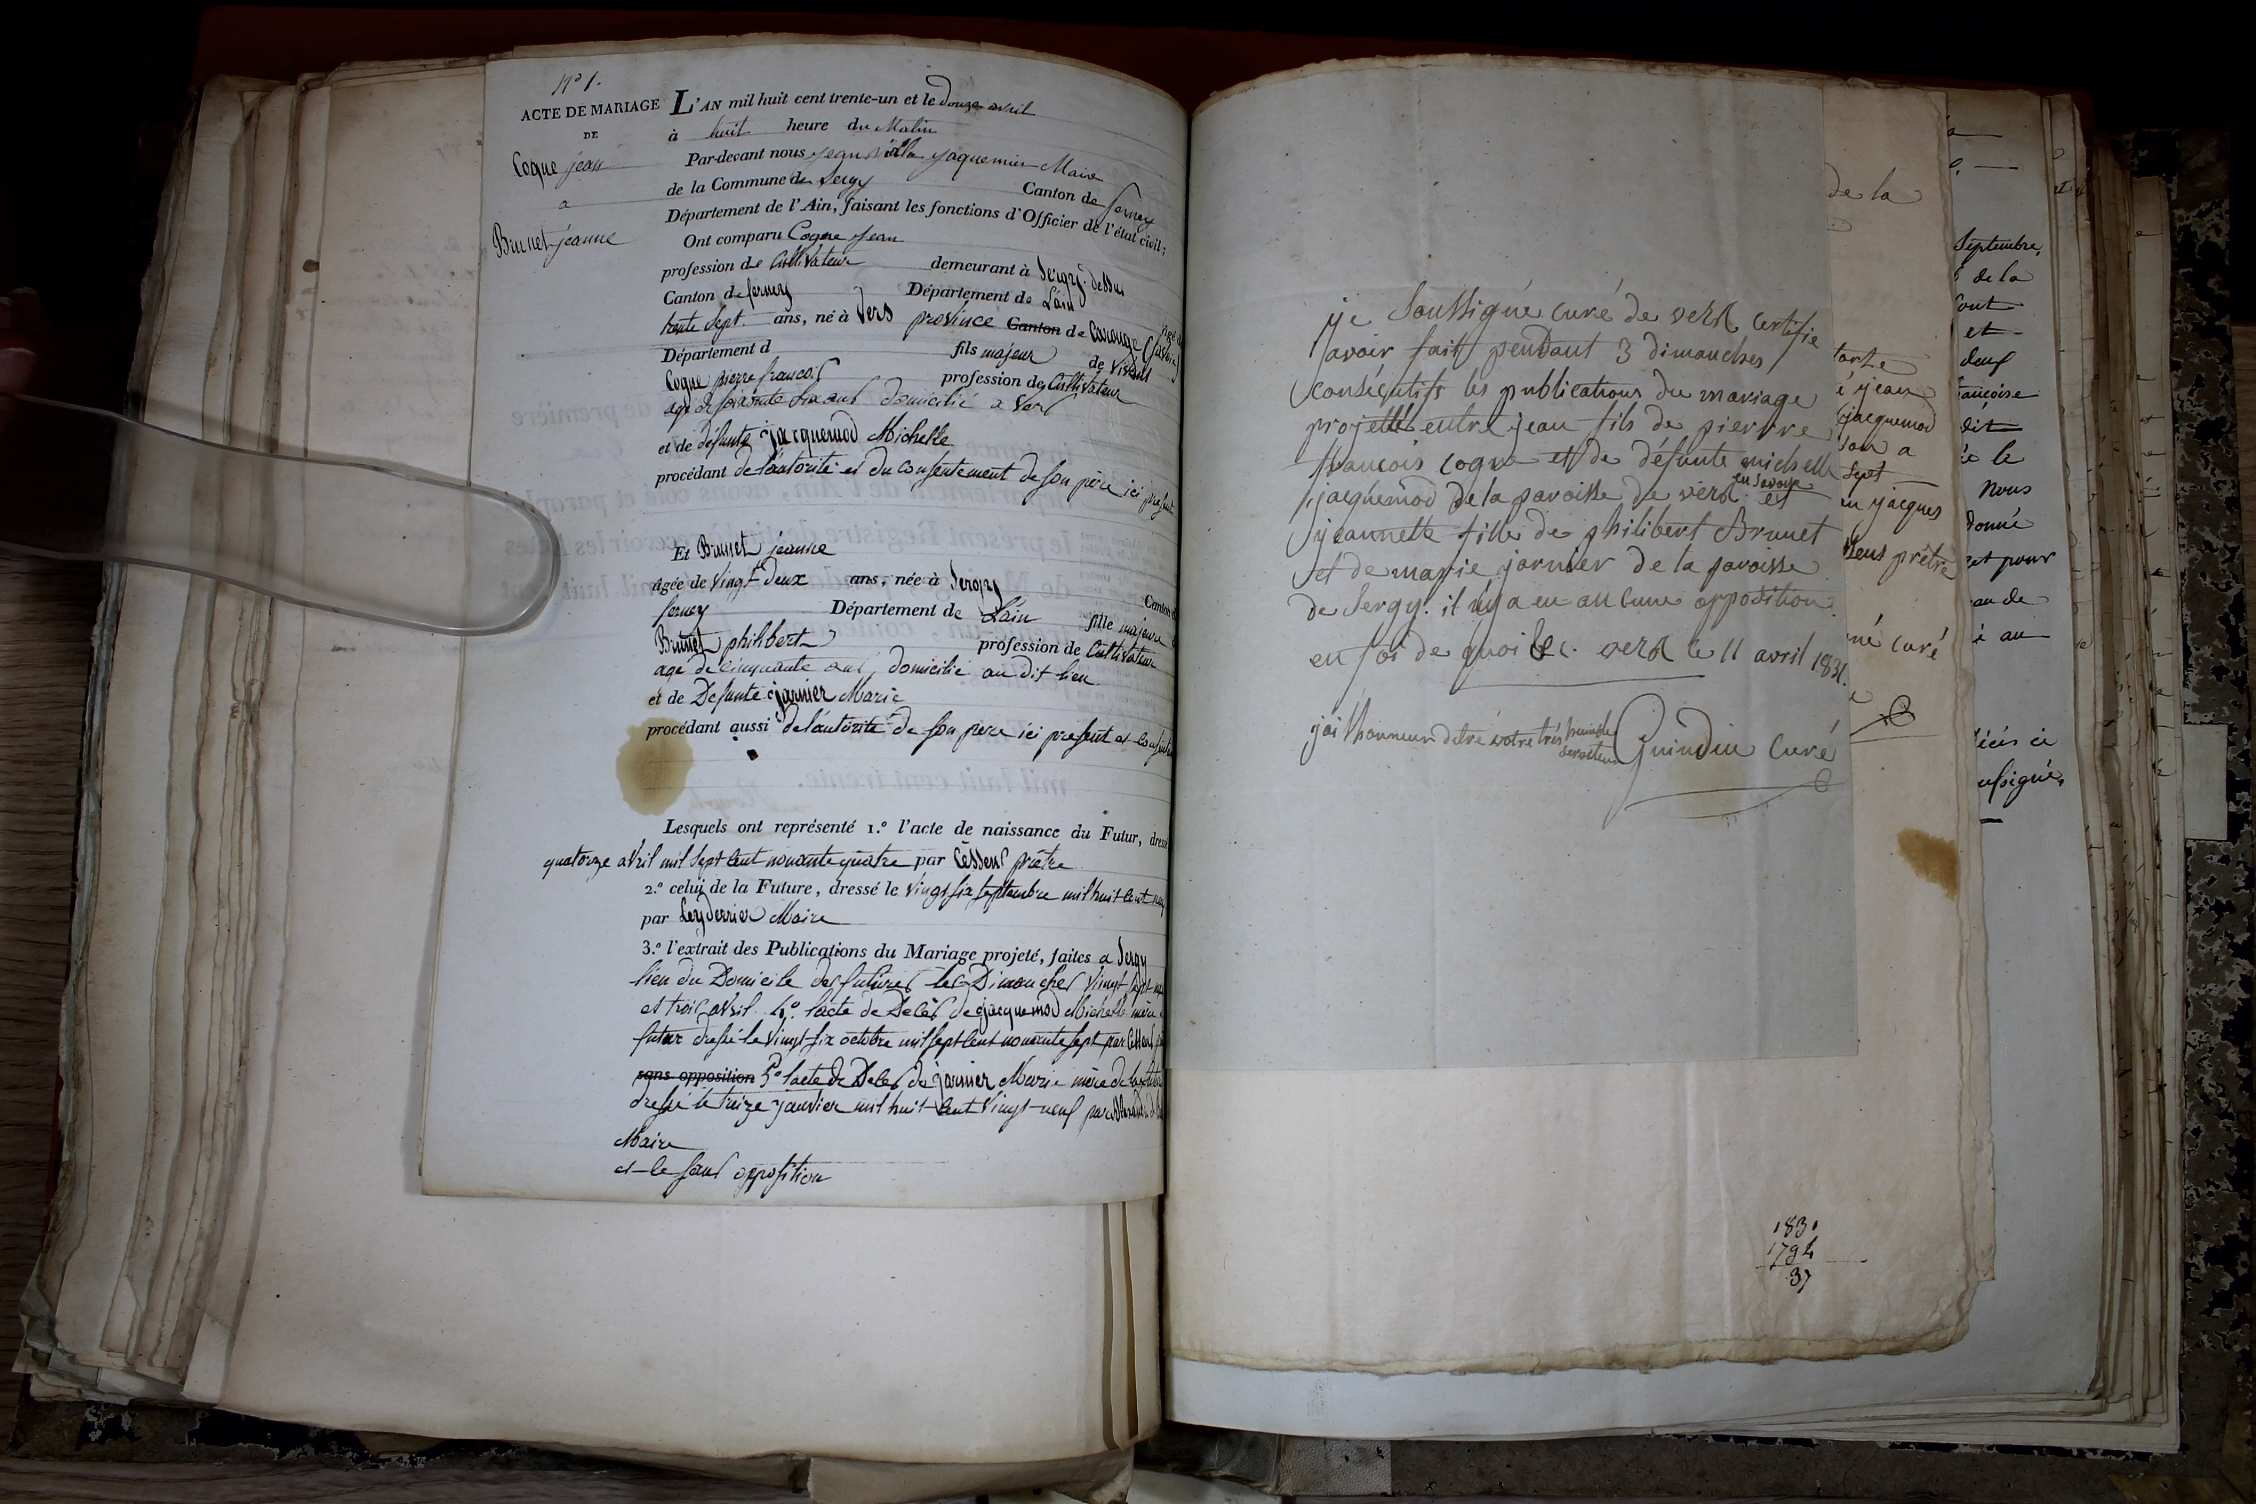 N° 1.
ACTE DE MARIAGE
DE
Coque jean
a
Brunet jeanne
L'AN mil huit cent trente-un et le Douze avril
à huit heure du Matin
Par-devant nous jean jaquemier Maire
de la Commune de Sergy Canton de ferney
Département de l'Ain, faisant les fonctions d'Officier de l'état civil;
Ont comparu Coque jean
profession de Cultivateur demeurant à Sergy dessus
Canton de ferney Département de L'ain âgé de
trente sept ans, né à Vers province Canton de Carouge (Savoie)
Département d fils majeur de vivant
Coque pierre francois profession de Cultivateur
agé de soixante ans domicilié a Vers
et de défunte jacquemod Michelle
procédant de l'autorité et du consentement de son père ici présent
Et Brunet jeanne
âgée de Vingt deux ans, née à Sergy Canton de
ferney Département de L'ain fille majeure
Brunet philibert profession de Cultivateur
agé de cinquante ans, domicilié au dit lieu
et de Defunte jarnier Marie
procédant aussi de l'autorité de son père ici présent et
Lesquels ont représenté 1.° l'acte de naissance du Futur, dressé
quatorze avril mil sept cent nonante quatre par Cessens prêtre
2.° celui de la Future, dressé le vingt six septembre mil huit cent
par Leyderrier Maire
3.° l'extrait des Publications du Mariage projeté, faites a Sergy
lieu du Domicile des futures les Dimanches Vingt sept
et trois avril. 4.° l'acte de Décès de jacquemod Michelle mère
futur dressé le Vingt six octobre mil sept cent nonante sept par Cessens
sans opposition 5° l'acte de Décès de jarnier Marie mère de la
dressé le treize janvier mil huit cent Vingt-neuf par
Maire
et le sans opposition
je soussigné curé de vers certifie
avoir fait pendant 3 dimanches
consécutifs les publications du mariage
projetté entre jean fils de pierre
francois coque et de défunte michelle
jacquemod de la paroisse de vers en Savoye et
jeannette fille de philibert Brunet
et de marie jarnier de la paroisse
de Sergy. il n'y a eu aucune opposition.
en foi de quoi &c. vers le 11 avril 1831.
jai l'honneur detre votre très humble
serviteur Guindin curé
1831
1794
37
de la
jean
jacquemod
son a
sept
jacques
prêtre
curé
Septembre,
de la
et
deux
francoise
dit
le
Nous
donné
pour
de
au